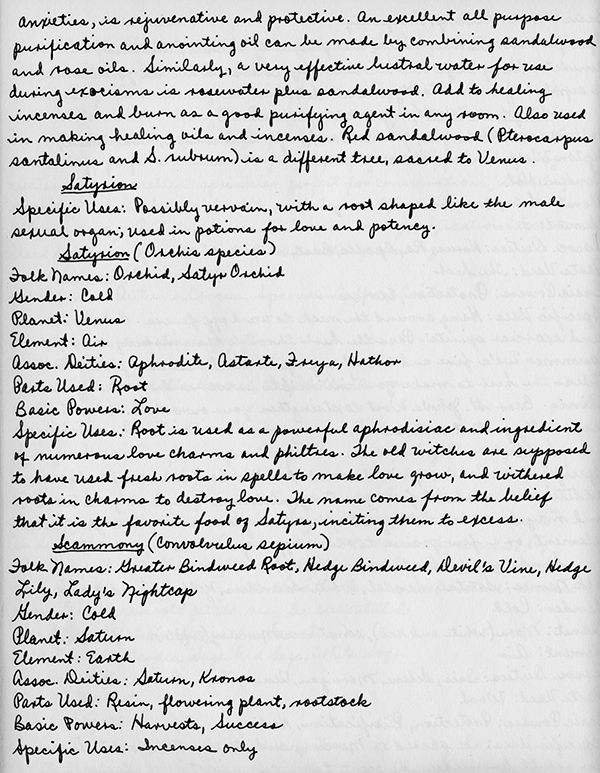 anxieties, is rejuvenative and protective. An excellent all purpose
purification and anointing oil can be made by combining sandalwood
and rose oils. Similarly, a very effective lustral water for use
during exorcisms is rosewater plus sandalwood. Add to healing
incenses and burn as a good purifying agent in any room. Also used
in making healing oils and incenses. Red sandalwood (Pterocarpus
santalinus and S. rubrum) is a different tree, sacred to Venus.
Satyrion
Specific Uses: Possibly vervain, with a root shaped like the male
sexual organ; used in potions for love and potency.
Satyrion (Orchis species)
Folk Names: Orchid, Satyr Orchid
Gender: Cold
Planet: Venus
Element: Air
Assoc. Deities: Aphrodite, Astarte, Freya, Hathor
Parts Used: Root
Basic Powers: Love
Specific Uses: Root is used as a powerful aphrodisiac and ingredient
of numerous love charms and philtres. The old witches are supposed
to have used fresh roots in spells to make love grow, and withered
roots in charms to destroy love. The name comes from the belief
that it is the favorite food of Satyrs, inciting them to excess.
Scammony (Convolvulus sepium)
Folk Names: Greater Bindweed Root, Hedge Bindweed, Devil's Vine, Hedge
Lily, Lady's Nightcap
Gender: Cold
Planet: Saturn
Element: Earth
Assoc. Deities: Saturn, Kronos
Parts Used: Resin, flowering plant, rootstock
Basic Powers: Harvests, Success
Specific Uses: Incenses only